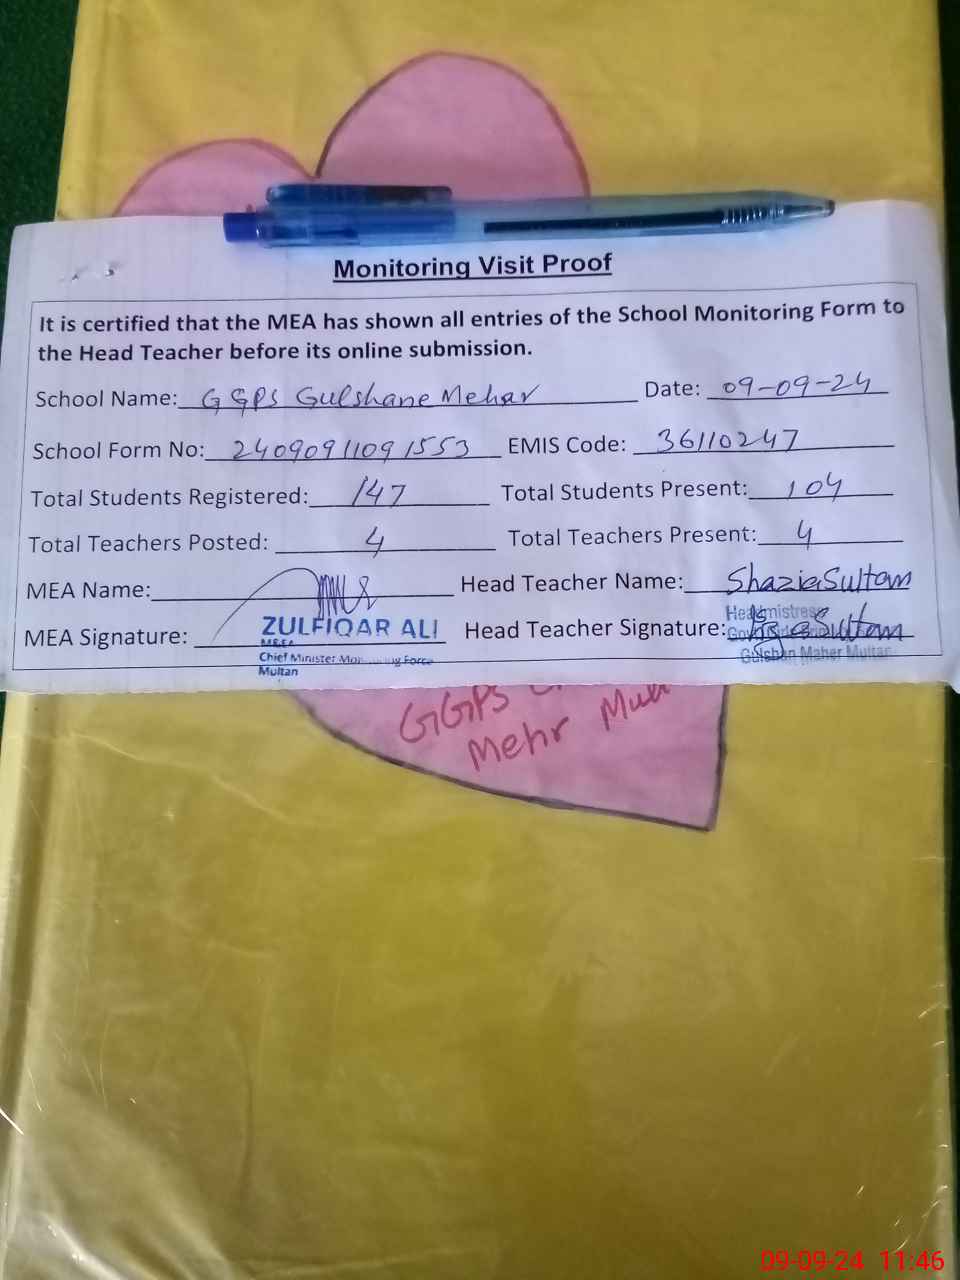 Monitoring Visit Proof
It is certified that the MEA has shown all entries of the School Monitoring Form to
the Head Teacher before its online submission.
School Name: GGPS Gulshane Mehar Date: 09-09-24
School Form No: 2409091109 1553 EMIS Code: 36110247
Total Students Registered: 147 Total Students Present: 104
Total Teachers Posted: 4 Total Teachers Present: 4
MEA Name: Head Teacher Name: Shazia Sultan
Headmistress
MEA Signature: ZULFIQAR ALI Head Teacher Signature:
MEA
Chief Minister Monitoring Force Gulshan Maher Multan
Multan
GGPS
Mehr
09-09-24 11:46